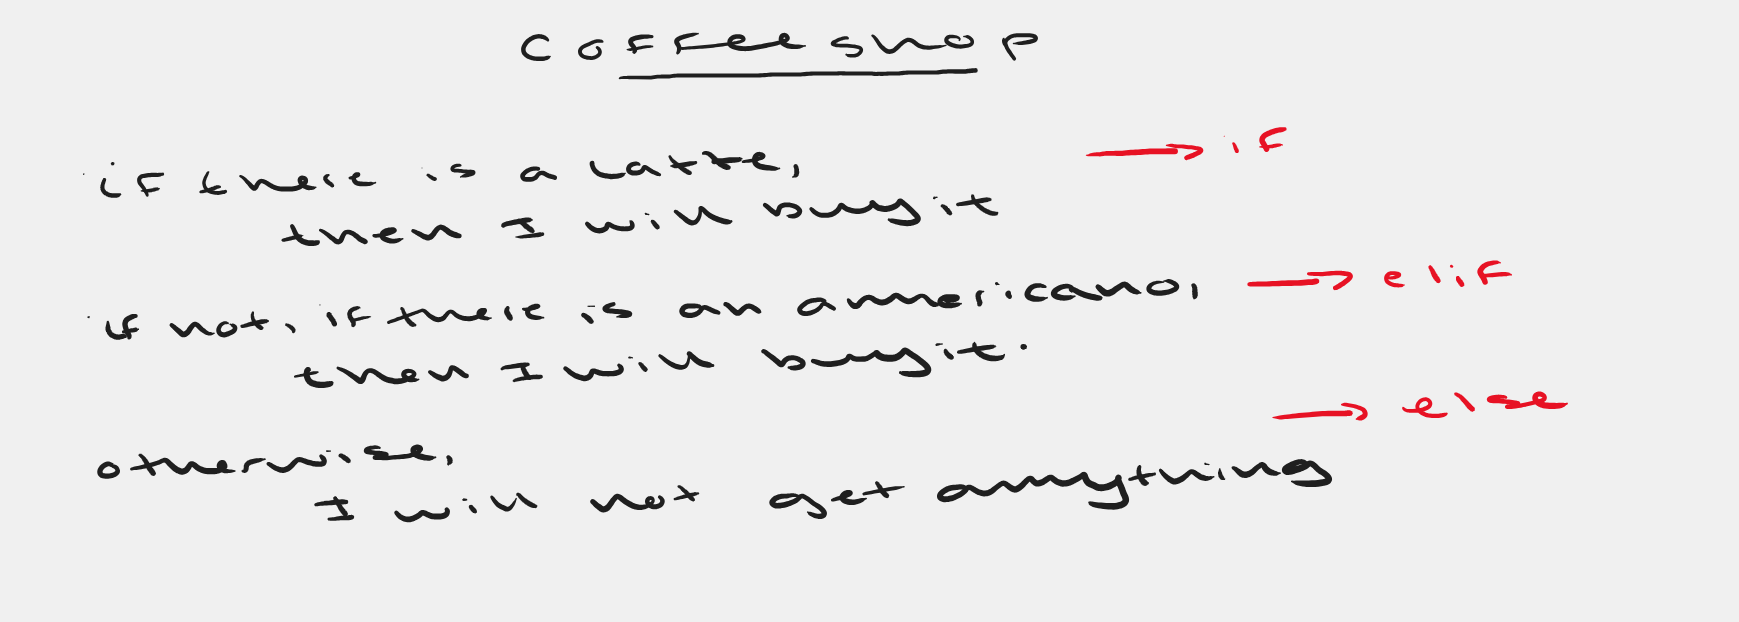 coffee shop
if there is a latte, → if
then I will buy it
if not, if there is an americano, → elif
then I will buy it.
→ else
otherwise,
I will not get anything